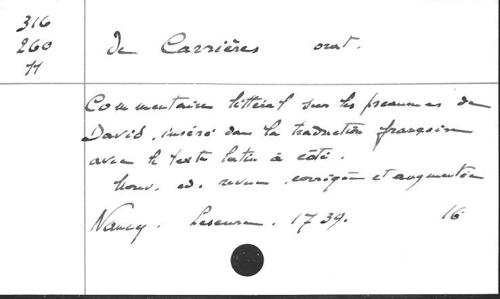 316
260
11
de Carrières orat.
Commentaire littéral sur les pseaumes de
David, inséré dans la traduction françoise
avec le texte latin à côté.
Nouv. ed. revue, corrigée et augmentée
Nancy. Leseure. 1739. 16